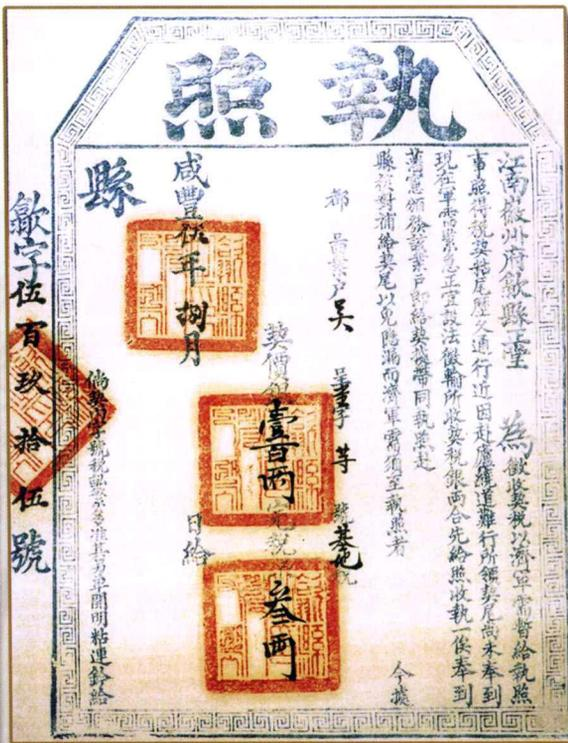 執照
江南徽州府歙縣臺 為徵收契稅以濟軍需暫給執照
事照得稅契粘尾歷久通行近因赴廬繞道難行所領契尾尚未奉到
現在軍需緊急正宜設法徵輸所收契稅銀兩合先給照收執一俟奉到
藩憲頒發該業戶即給契攜帶同執照赴
縣核對補給契尾以免隱漏而濟軍需須至執照者
今據
都 圖業戶吳 等 號 基地
契價銀壹百兩 完稅 叁兩
咸豐伍年捌月 日給
縣
倘契 字號稅 業 多准其另單開明粘連鈐給
歙字伍百玖拾伍號